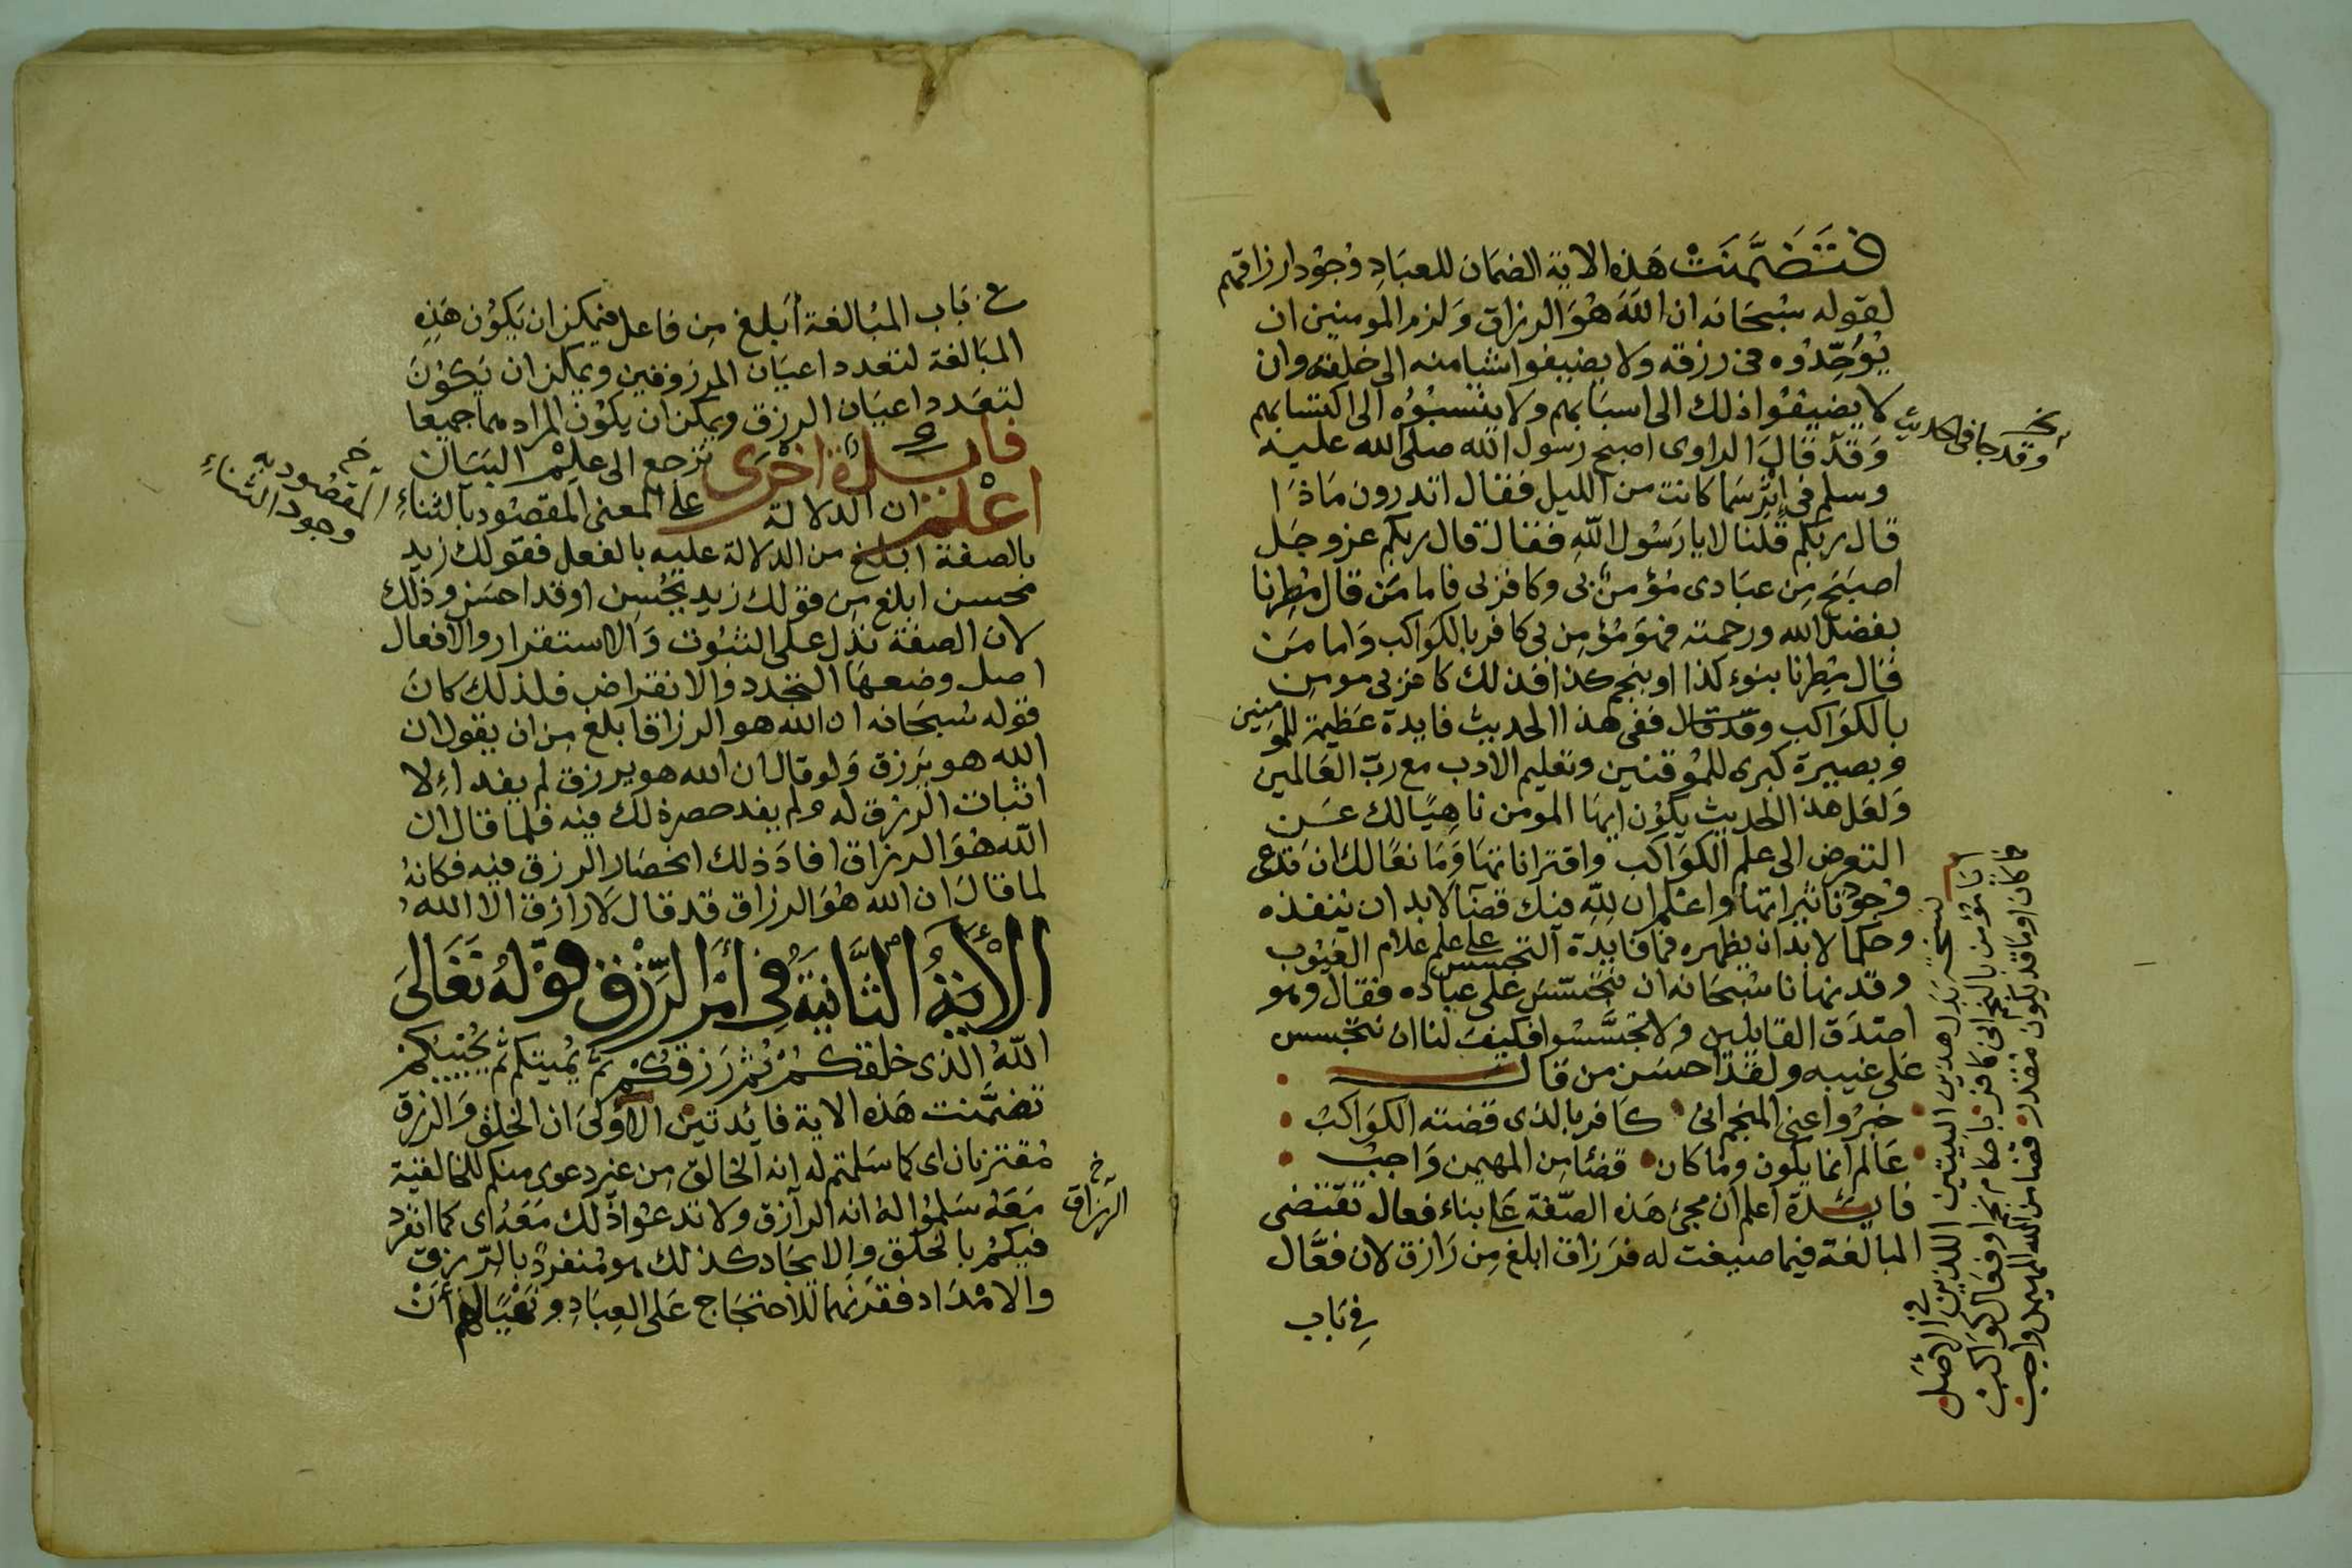 فتضَمَّنَتْ هَذه الاية الضمَان للعبَادِ وُجوُد ارزاقهم
لقوله سُبحَانه ان اللهَ هُوَ الرزاق وَلزم المومنين ان
يُوَحِّدُوه فى رزقه ولا يضيفوا شيا منه الى خلقه وان
لا يضيفُوا ذلك الى اسبَابهم ولا ينسبُوُه الى اكتسابهم
وَقدْ قالَ الراوى اصبح رسول الله صلى الله عليه
وسلم فى إثر سَما كانت من الليل فقال اتدرون مَاذَا
قال ربكم قُلنا لا يا رَسُول اللهِ فقال قال ربكم عز وجَل
اصبَحَ مِن عبَادى مُؤمنٌ بى وكافر بى فاما مَن قال مُطِرنا
بفضل الله ورحمته فهوَ مُؤمِن بى كافر بالكوَاكب وَاما مَن
قال مُطِرنا بنوء كذا او بنجم كذا فذلك كافر بى مومن
بالكوَاكب وقد قال ففى هذا الحديث فايدة عَظيمة للمومنين
وبصيرة كبرى للمُوقنين وتعليم الادب مع ربّ العَالمين
وَلعَل هذا الحديث يكوُن ايهَا المومن ناهِيًا لك عَن
التعرض الى علم الكوَاكب واقتراناتهَا وَمَانعًا لك ان تدعى
وُجوُد تاثيراتها واعلم ان للهِ فيك قضَآ لا بد ان ينفذه
وحكما لا بد ان يظهره فما فايدة التجسس على علم علام الغيُوب
وقد نهانا سُبحَانه ان نتجَسّسَ على عباده فقال وهو
اصدَق القايلين ولا تجسَّسُوا فكيفَ لنا ان نتجسس
عَلى غيبه ولقد احسَن من قال
خبرُوا عنى المنجم انى كافر بالذى قضته الكوَاكبُ
عَالم انما يكون وما كان قضَا من المهيمن وَاجبُ
فايدة اعلم ان مجئ هَذه الصّفة عَلى بناء فعال تقتضى
المبالغة فيما صيغت له فرَزاق ابلغ مِن رَازق لان فعَّال
فى بَاب
نخـ
وقد جا فى الحديث
نسخة بَدَل هذين البيتين اللذين فى الاصَل
انا مؤمن بالنجم انى كافر باحكام نجم او فعَال كوَاكب
فما كان او ما قد يكون مقدر قضا من الله المهيمن واجب
فى بَاب المبَالغة أبلغ مِن فاعل فيمكن ان يَكوُن هَذِهِ
المبَالغة لتعدد اعيَان المرزوقين ويمكن ان يَكوُنَ
لتعَدد اعيَان الرزق ويمكن ان يكوُن المراد هما جميعا
فايدة اخرَى ترجع الى عِلْم البيَان
اعْلَمْ ان الدلالة على المعنى المقصُود بالثناءِ
بالصفة ابلغ من الدلالة عليه بالفعل فقولك زيد
محسن ابلغ مِن قولك زيد يحُسِن او قد احسَن وذلك
لان الصفة تدُل على الثبُوت وَالاستقرار والافعال
اصل وضعهَا التجدد والانقراض فلذلك كانَ
قوله سُبحَانه ان الله هو الرزاق ابلغ مِن ان يقول ان
الله هو يَرزق وَلو قال ان الله هو يرزق لم يفد إلا
اثبات الرزق له ولم يفد حصر ذلك فيه فلما قال ان
اللهَ هُوَ الرزاق افادَ ذلك انحصَار الرزق فيه فكانهُ
لما قالَ ان الله هُوَ الرزاق قد قال لَا رازق الا الله
الآيَةُ الثَّانيَةُ فى أمْر الرِّزْق قَوْلهُ تَعَالىَ
اللهُ الذى خلقكُمْ ثُمَّ رَزقكُمْ ثم يُميتكم ثم يُحْييكمْ
تضمَّنت هَذه الاية فائدتيْن الاوُلىَ ان الخلق وَالرزق
مُقترنان اى كما سَلمتم له انه الخالق مِن غير دعوى منكم للخالقية
مَعَهُ سَلمُوا لهُ انه الرآزق ولا تدعُوا ذلك مَعَهُ اى كما انفرد
فيكمُ بالخلق والايجَاد كذلك هو مُنفردٌ بالرّزق
والامْدَاد فقرَنهما للاحتجَاج عَلى العِبَادِ ونهْيًا لهُم أنْ
خـ
المقصُود به
وجود الثناءِ
خـ
الرزاق